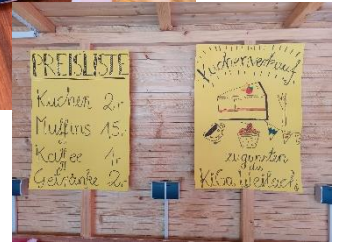 PREISLISTE
Kuchen 2,-
Muffins 1,5.-
Kaffee 1,-
Getränke 2,-
Kuchenverkauf
zugunsten
des
KiGa Weilach